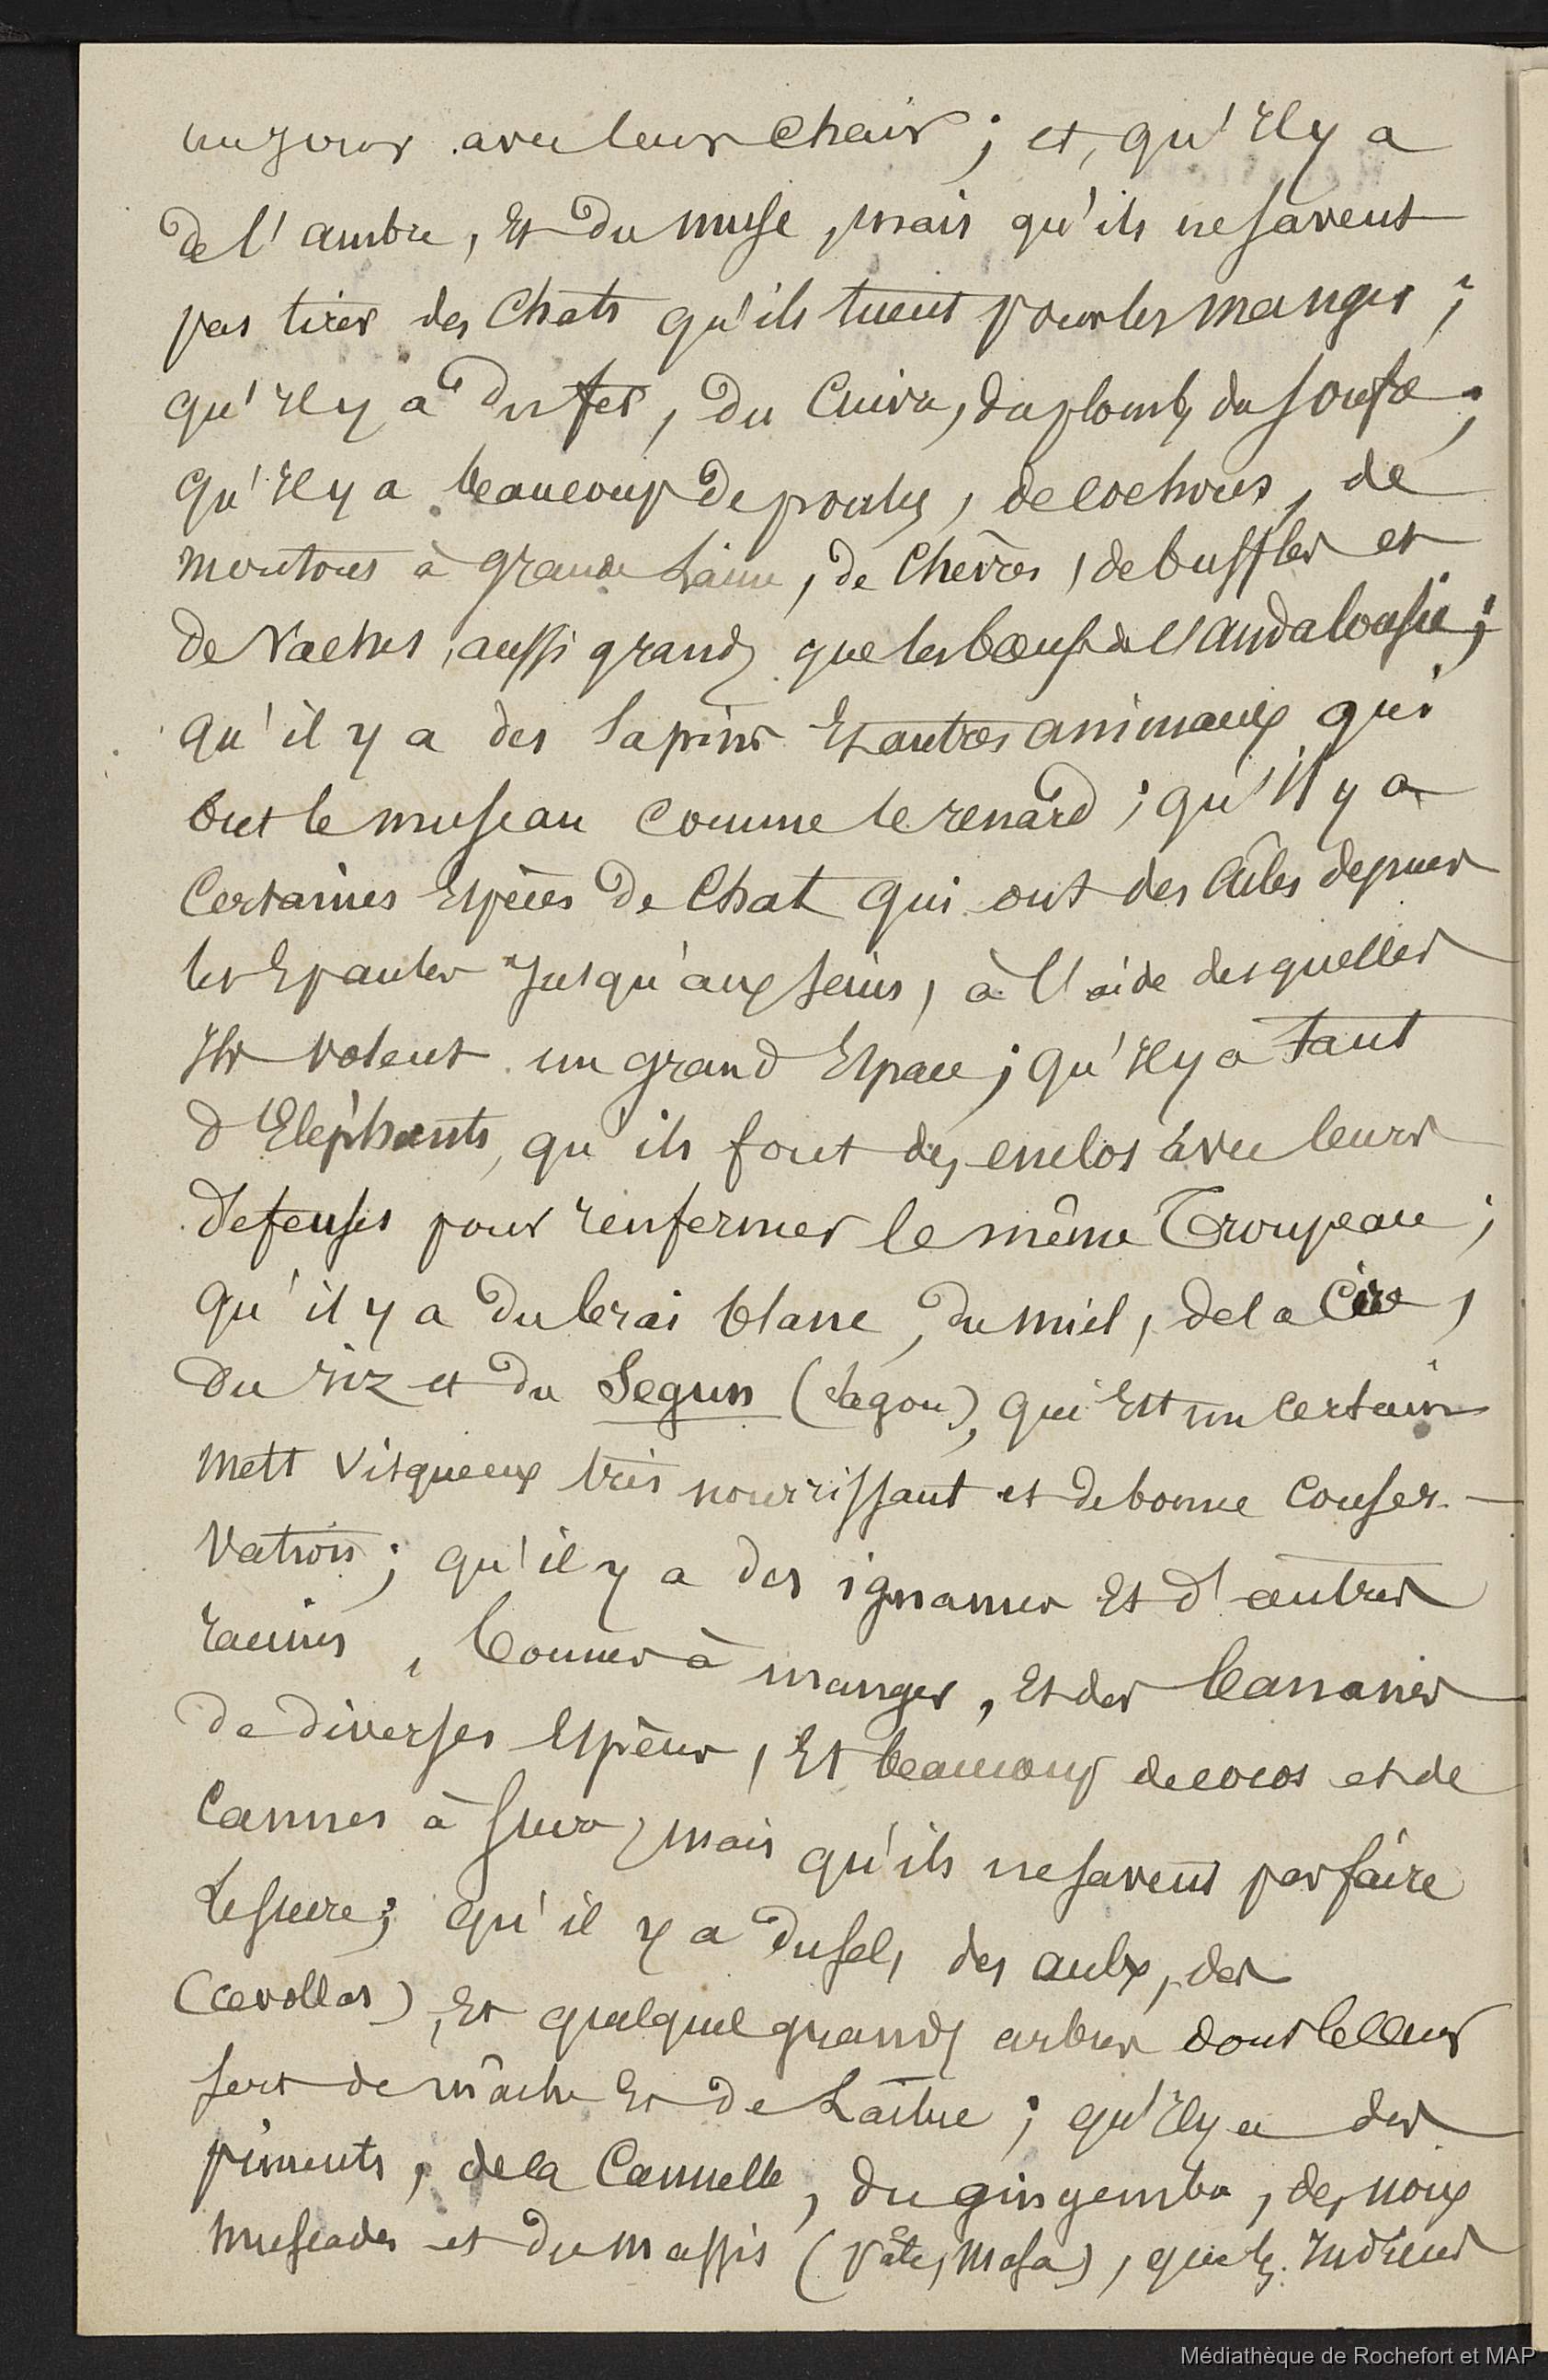 un jour avec leur Chair ; et, qu'Il y a
de l'ambre, Et du musc, mais qu'ils ne savent
pas tirer des Chats qu'ils tuent pour les manger ;
qu'Il y a du fer, du Cuivre, du plomb, du soufre ;
qu'Il y a beaucoup de poules, de cochons, de
moutons à grande Laine, de Chèvres, de buffles et
de Vaches, aussi grands que les bœufs de l'andalousie ;
qu'il y a des lapins Et autres animaux qui
ont le museau comme le renard ; qu'Il y a
Certaines Espèces de Chat qui ont des Ailes depuis
les Epaules Jusqu'aux seins, à l'aide desquelles
Ils volent un grand Espace ; qu'Il y a tant
d'Eléphants, qu'ils font des enclos avec leurs
défenses pour renfermer le même Troupeau ;
qu'il y a du brai blanc, du miel, de la Cire,
du riz et du Segun (Sagou), qui Est un certain
mett visqueux très nourrissant et de bonne conser-
vation ; qu'il y a des ignames Et d'autres
racines, bonnes à manger, Et des bananes
de diverses Espèces, Et beaucoup de cocos et de
Cannes à sucre, mais qu'ils ne savent pas faire
Le sucre ; qu'il y a du sel, des aulx, des
(cevollas), Et quelques grands arbres dont le cœur
sert de mâche Et de Laitue ; qu'Il y a des
piments, de la Cannelle, du gingembre, des noix
muscades et du massis (pâte, masa), que les Indiens
Médiathèque de Rochefort et MAP